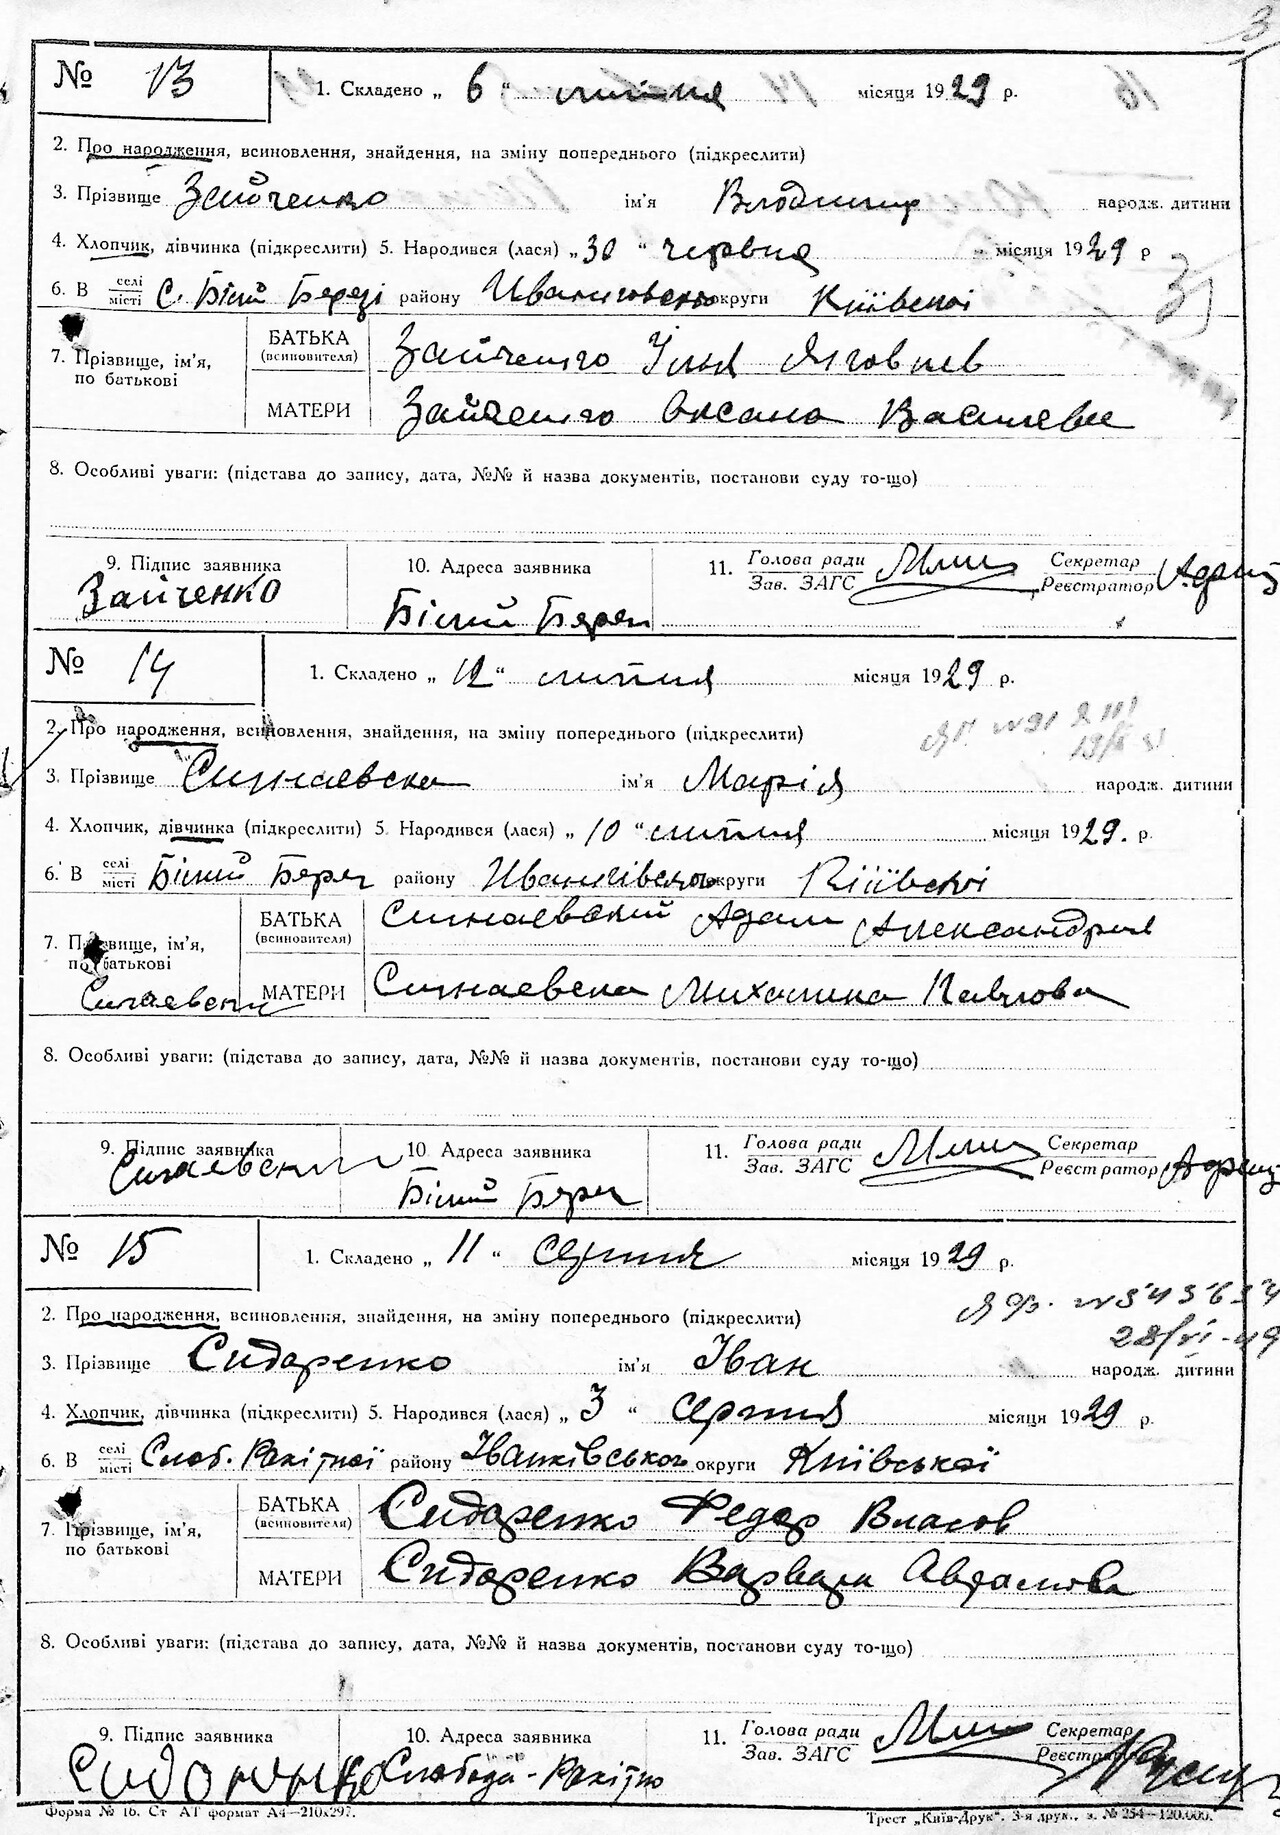 3
№ 13 1. Складено „ 6 “ липня місяця 1929 р.
2. Про народження, всиновлення, знайдення, на зміну попереднього (підкреслити)
3. Прізвище Зайченко ім'я Володимир народж. дитини
4. Хлопчик, дівчинка (підкреслити) 5. Народився (лася) „ 30 “ червня місяця 1929 р
6. В селі місті С. Білий Березі району округи Київської
БАТЬКА (всиновителя) Зайченко Ілля
7. Прізвище, ім'я, по батькові
МАТЕРИ Зайченко Оксана Василевна
8. Особливі уваги: (підстава до запису, дата, №№ й назва документів, постанови суду то-що)
9. Підпис заявника 10. Адреса заявника 11. Голова ради Зав. ЗАГС Секретар Реєстратор
Зайченко Білий Берег
№ 14 1. Складено „ 12 “ липня місяця 1929 р.
2. Про народження, всиновлення, знайдення, на зміну попереднього (підкреслити)
3. Прізвище Сингаевска ім'я Марія народж. дитини
4. Хлопчик, дівчинка (підкреслити) 5. Народився (лася) „ 10 “ липня місяця 1929. р.
6. В селі місті Білий Берег району округи Київскоі
БАТЬКА (всиновителя) Сингаевский Адам
7. Прізвище, ім'я, по батькові
МАТЕРИ Сингаевска Михалина Павлова
8. Особливі уваги: (підстава до запису, дата, №№ й назва документів, постанови суду то-що)
9. Підпис заявника 10 Адреса заявника 11. Голова ради Зав. ЗАГС Секретар Реєстратор
Білий Берег
№ 15 1. Складено „ 11 “ серпня місяця 1929 р.
2. Про народження, всиновлення, знайдення, на зміну попереднього (підкреслити)
3. Прізвище Сидоренко ім'я Іван народж. дитини
4. Хлопчик, дівчинка (підкреслити) 5. Народився (лася) „ 3 “ серпня місяця 1929 р.
6. В селі місті Слоб. Рахітної району Іванківського округи Київської
БАТЬКА (всиновителя) Сидоренко Федор Власов
7. Прізвище, ім'я, по батькові
МАТЕРИ Сидоренко Варвара Аврамова
8. Особливі уваги: (підстава до запису, дата, №№ й назва документів, постанови суду то-що)
9. Підпис заявника 10. Адреса заявника 11. Голова ради Зав. ЗАГС Секретар Реєстратор
Слобода-Рахітно
Форма № 16. Ст АТ формат А4—210х297. Трест „Київ-Друк“. 3-я друк., з. № 254—120.000.